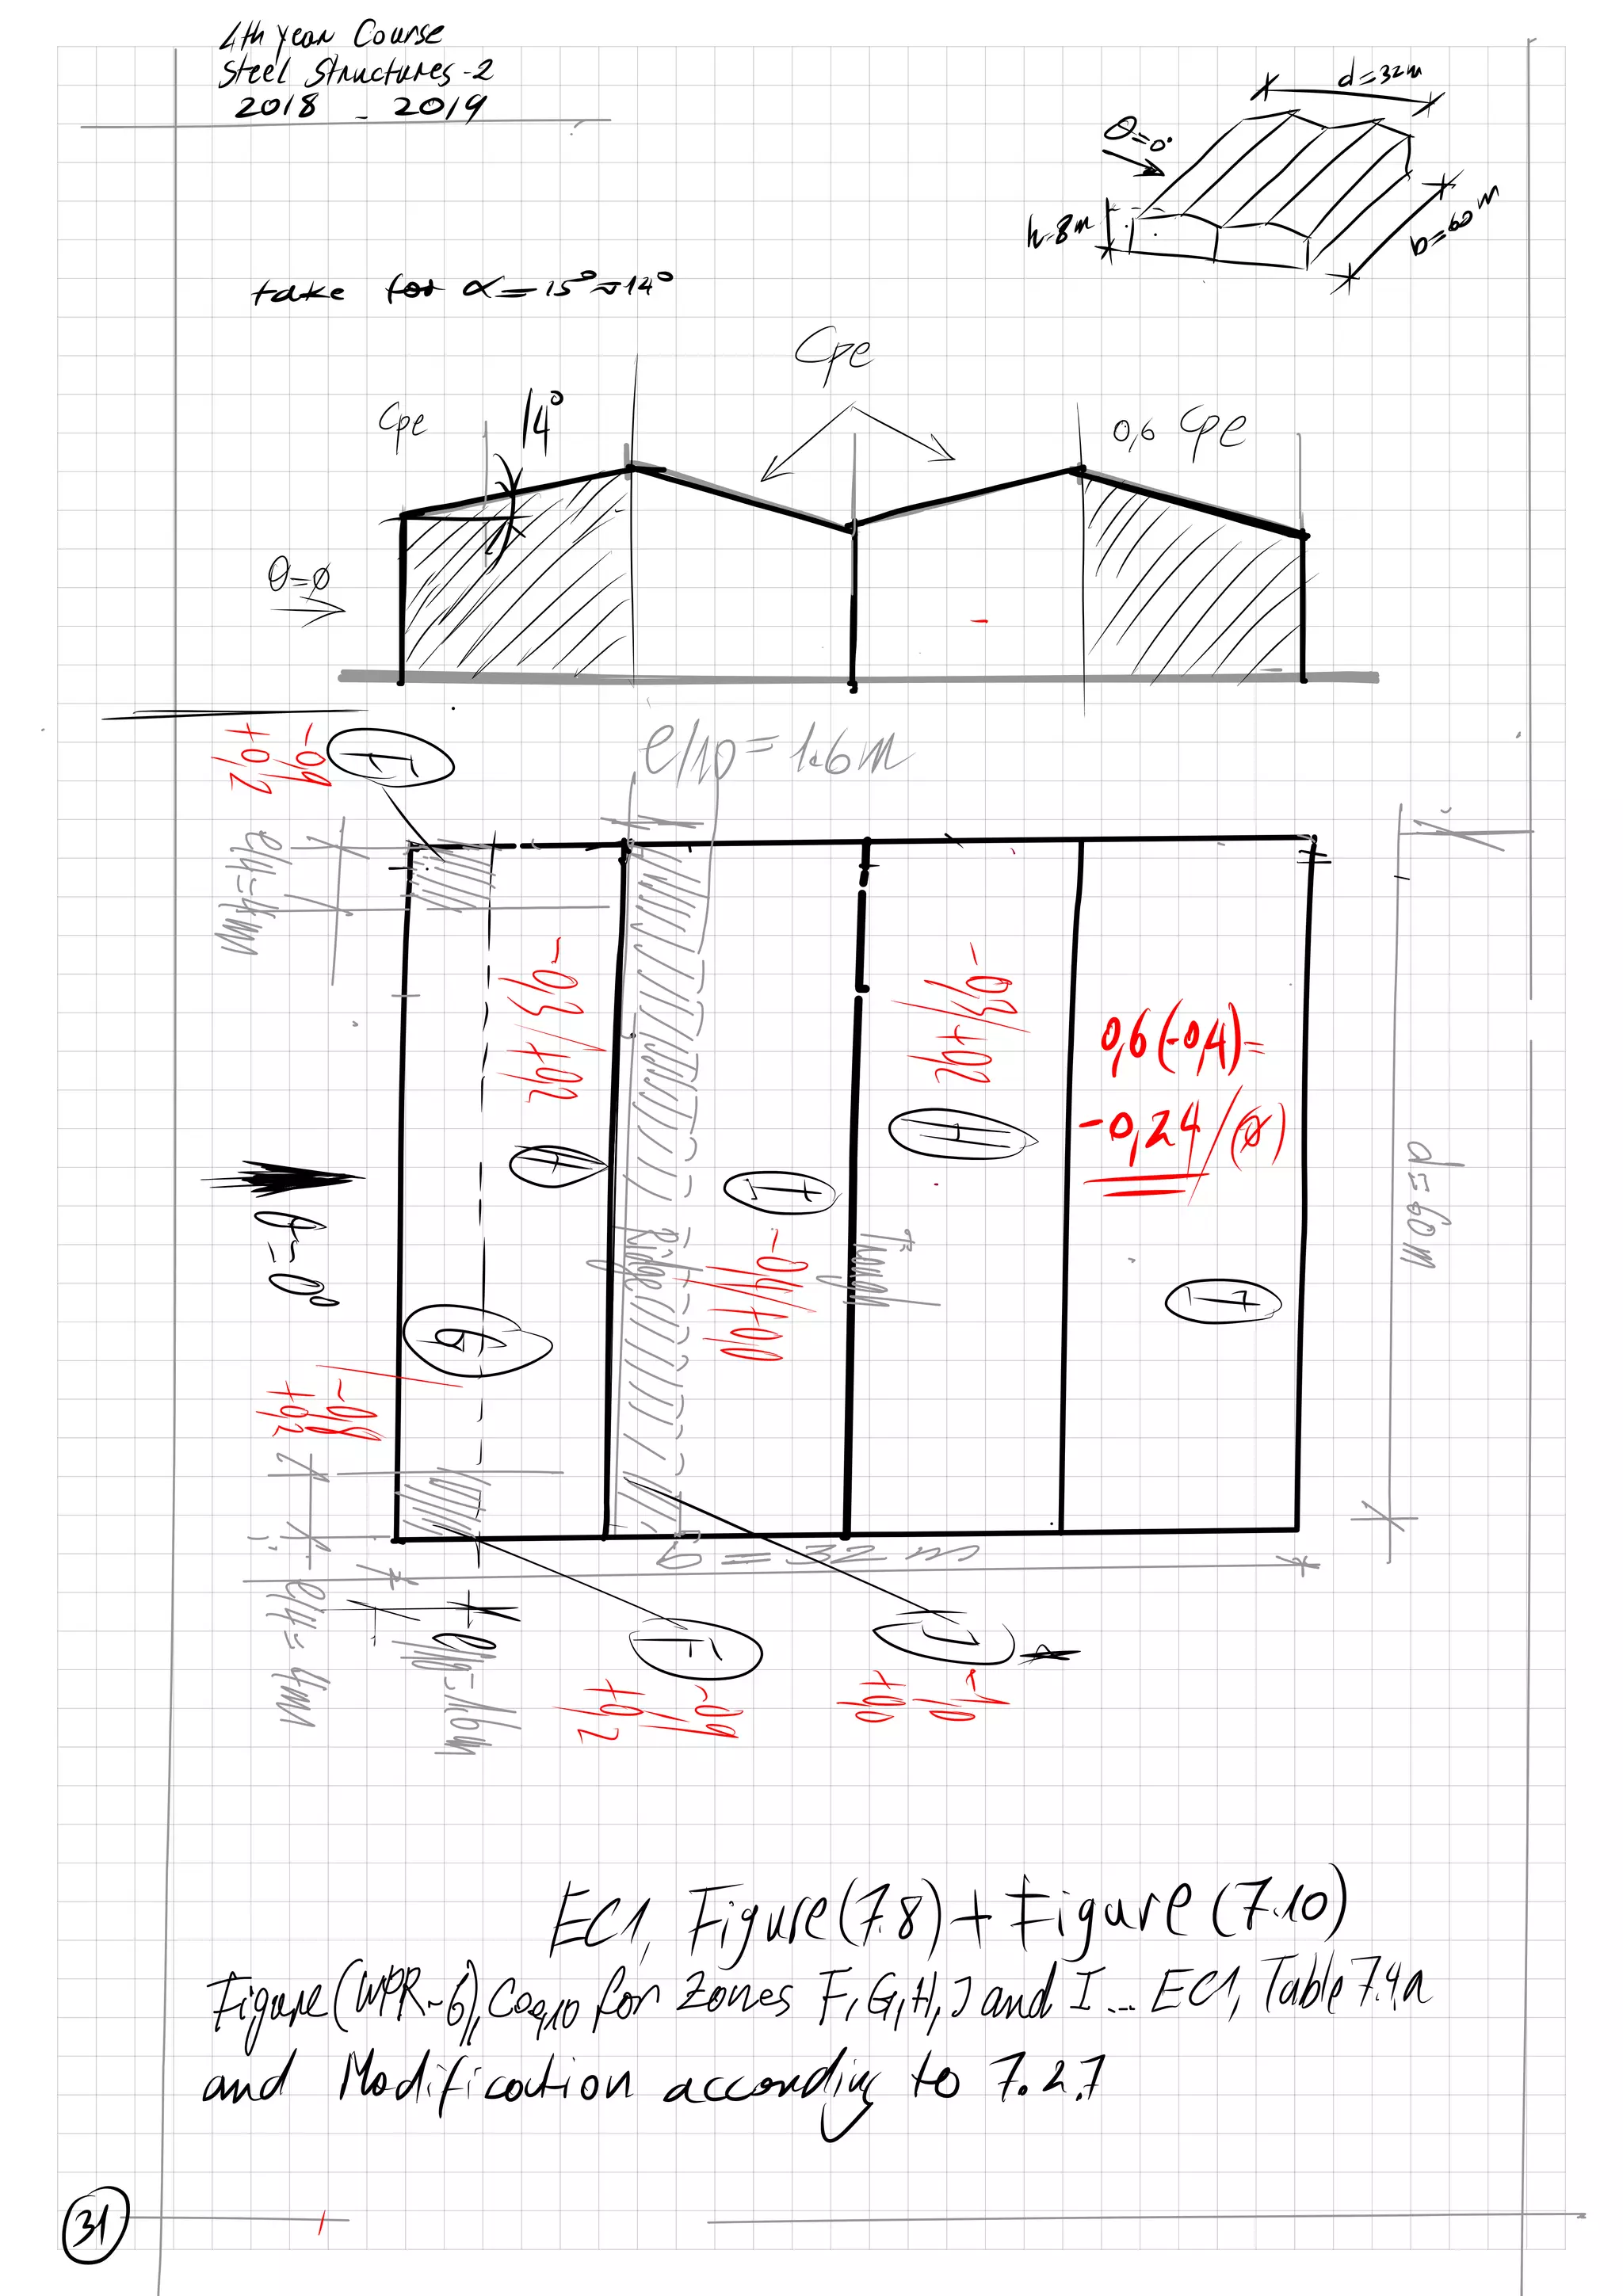 4th year Course
Steel Structures-2
2018 - 2019
d=32m
θ=0°
h=8m
b=60m
take for α=15°≈14°
Cpe
Cpe
14°
0,6 Cpe
θ=ø
-0,9
+0,2
F
e/10=1.6m
e/4=4m
-0,3/+0,2
-0,3/+0,2
0,6(-0,4)=
-0,24/(ø)
H
H
I
θ=0°
Ridge
Trough
-0,4/+0,0
d=60m
I
G
-0,8
+0,2
b=32m
e/4=4m
e/10=1.6m
F
J
-0,9
+0,2
-1,0
+0,0
EC1, Figure(7.8)+Figure(7.10)
Figure(WPR-6), Cpe,10 for zones F,G,H,J and I... EC1, Table 7.4.a
and Modification according to 7.2.7
31